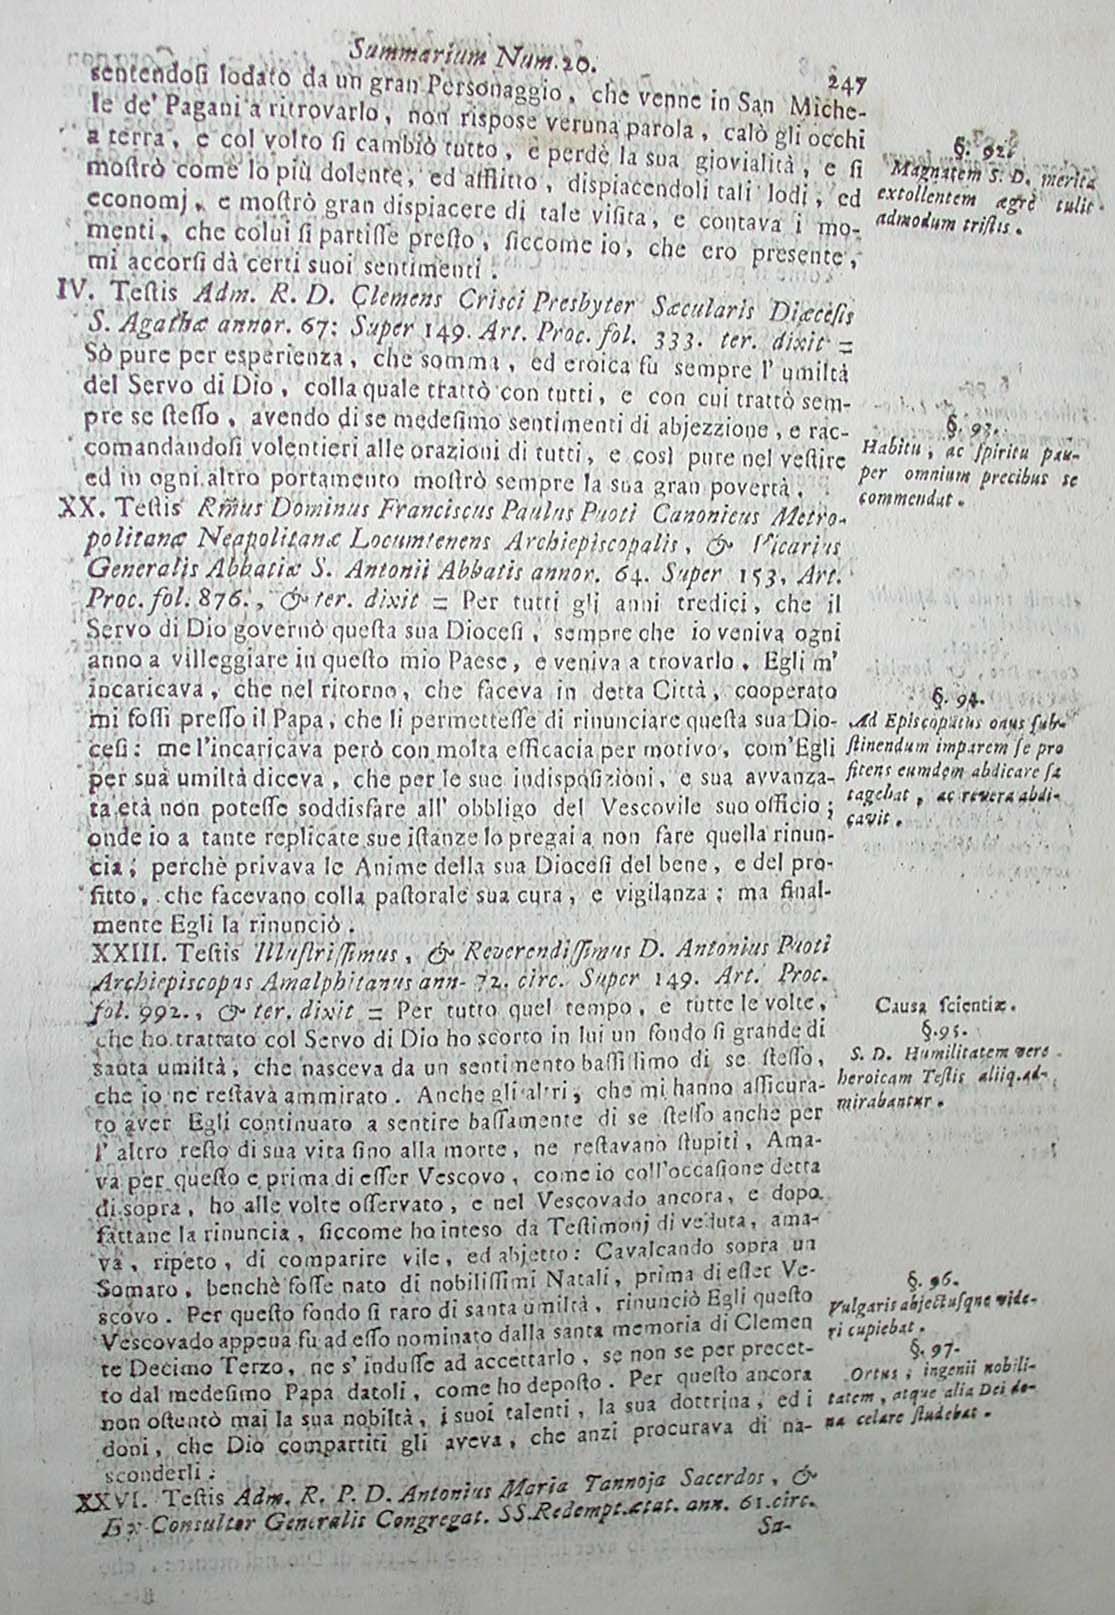 Summarium Num. 20.
247
sentendosi lodato da un gran Personaggio, che venne in San Miche-
le de' Pagani a ritrovarlo, non rispose veruna parola, calò gli occhi
a terra, e col volto si cambiò tutto, e perdè la sua giovialità, e si
mostrò come lo più dolente, ed afflitto, dispiacendoli tali lodi, ed
economj, e mostrò gran dispiacere di tale visita, e contava i mo-
menti, che colui si partisse presto, siccome io, che ero presente,
mi accorsi dà certi suoi sentimenti.
§. 92.
Magnatem S. D. merita
extollentem ægrè tulit
admodum tristis.
IV. Testis Adm. R. D. Clemens Crisci Presbyter Sæcularis Diæcesis
S. Agathæ annor. 67: Super 149. Art. Proc. fol. 333. ter. dixit =
Sò pure per esperienza, che somma, ed eroica fu sempre l' umiltà
del Servo di Dio, colla quale trattò con tutti, e con cui trattò sem-
pre se stesso, avendo di se medesimo sentimenti di abjezzione, e rac-
comandandosi volentieri alle orazioni di tutti, e così pure nel vestire
ed in ogni altro portamento mostrò sempre la sua gran povertà.
§. 93.
Habitu, ac spiritu pau-
per omnium precibus se
commendat.
XX. Testis Rm̃us Dominus Franciscus Paulus Puoti Canonicus Metro-
politanæ Neapolitanæ Locumtenens Archiepiscopalis, & Vicarius
Generalis Abbatiæ S. Antonii Abbatis annor. 64. Super 153. Art.
Proc. fol. 876., & ter. dixit = Per tutti gli anni tredici, che il
Servo di Dio governò questa sua Diocesi, sempre che io veniva ogni
anno a villeggiare in questo mio Paese, e veniva a trovarlo. Egli m'
incaricava, che nel ritorno, che faceva in detta Città, cooperato
mi fossi presso il Papa, che li permettesse di rinunciare questa sua Dio-
cesi: me l'incaricava però con molta efficacia per motivo, com'Egli
per sua umiltà diceva, che per le sue indisposizioni, e sua avvanza-
ta età non potesse soddisfare all' obbligo del Vescovile suo officio;
onde io a tante replicate sue istanze lo pregai a non fare quella rinun-
cia; perchè privava le Anime della sua Diocesi del bene, e del pro-
fitto, che facevano colla pastorale sua cura, e vigilanza; ma final-
mente Egli la rinunciò.
§. 94.
Ad Episcopatus onus sub-
stinendum imparem se pro
fitens eumdem abdicare sa
tagebat, ac revera abdi-
cavit.
XXIII. Testis Illustrissimus, & Reverendissimus D. Antonius Puoti
Archiepiscopus Amalphitanus ann. 72. circ. Super 149. Art. Proc.
fol. 992., & ter. dixit = Per tutto quel tempo, e tutte le volte,
che ho trattato col Servo di Dio ho scorto in lui un fondo sì grande di
santa umiltà, che nasceva da un sentimento bassissimo di se stesso,
che io ne restava ammirato. Anche gli altri, che mi hanno assicura-
to aver Egli continuato a sentire bassamente di se stesso anche per
l' altro resto di sua vita sino alla morte, ne restavano stupiti, Ama-
va per questo e prima di esser Vescovo, come io coll'occasione detta
di sopra, ho alle volte osservato, e nel Vescovado ancora, e dopo
fattane la rinuncia, siccome ho inteso da Testimonj di veduta, ama-
va, ripeto, di comparire vile, ed abjetto: Cavalcando sopra un
Somaro, benchè fosse nato di nobilissimi Natali, prima di esser Ve-
scovo. Per questo fondo sì raro di santa umiltà, rinunciò Egli questo
Vescovado appena fu ad esso nominato dalla santa memoria di Clemen
te Decimo Terzo, ne s' indusse ad accettarlo, se non se per precet-
to dal medesimo Papa datoli, come ho deposto. Per questo ancora
non ostentò mai la sua nobiltà, i suoi talenti, la sua dottrina, ed i
doni, che Dio compartiti gli aveva, che anzi procurava di na-
sconderli.
Causa scientiæ.
§. 95.
S. D. Humilitatem vere
heroicam Testis aliiq. ad-
mirabantur.
§. 96.
Vulgaris abjectusque vide-
ri cupiebat.
§. 97.
Ortus, ingenii nobili-
tatem, atque alia Dei do-
na celare studebat.
XXVI. Testis Adm. R. P. D. Antonius Maria Tannoja Sacerdos, &
Ex-Consultor Generalis Congregat. SS. Redempt. ætat. ann. 61. circ.
Su-